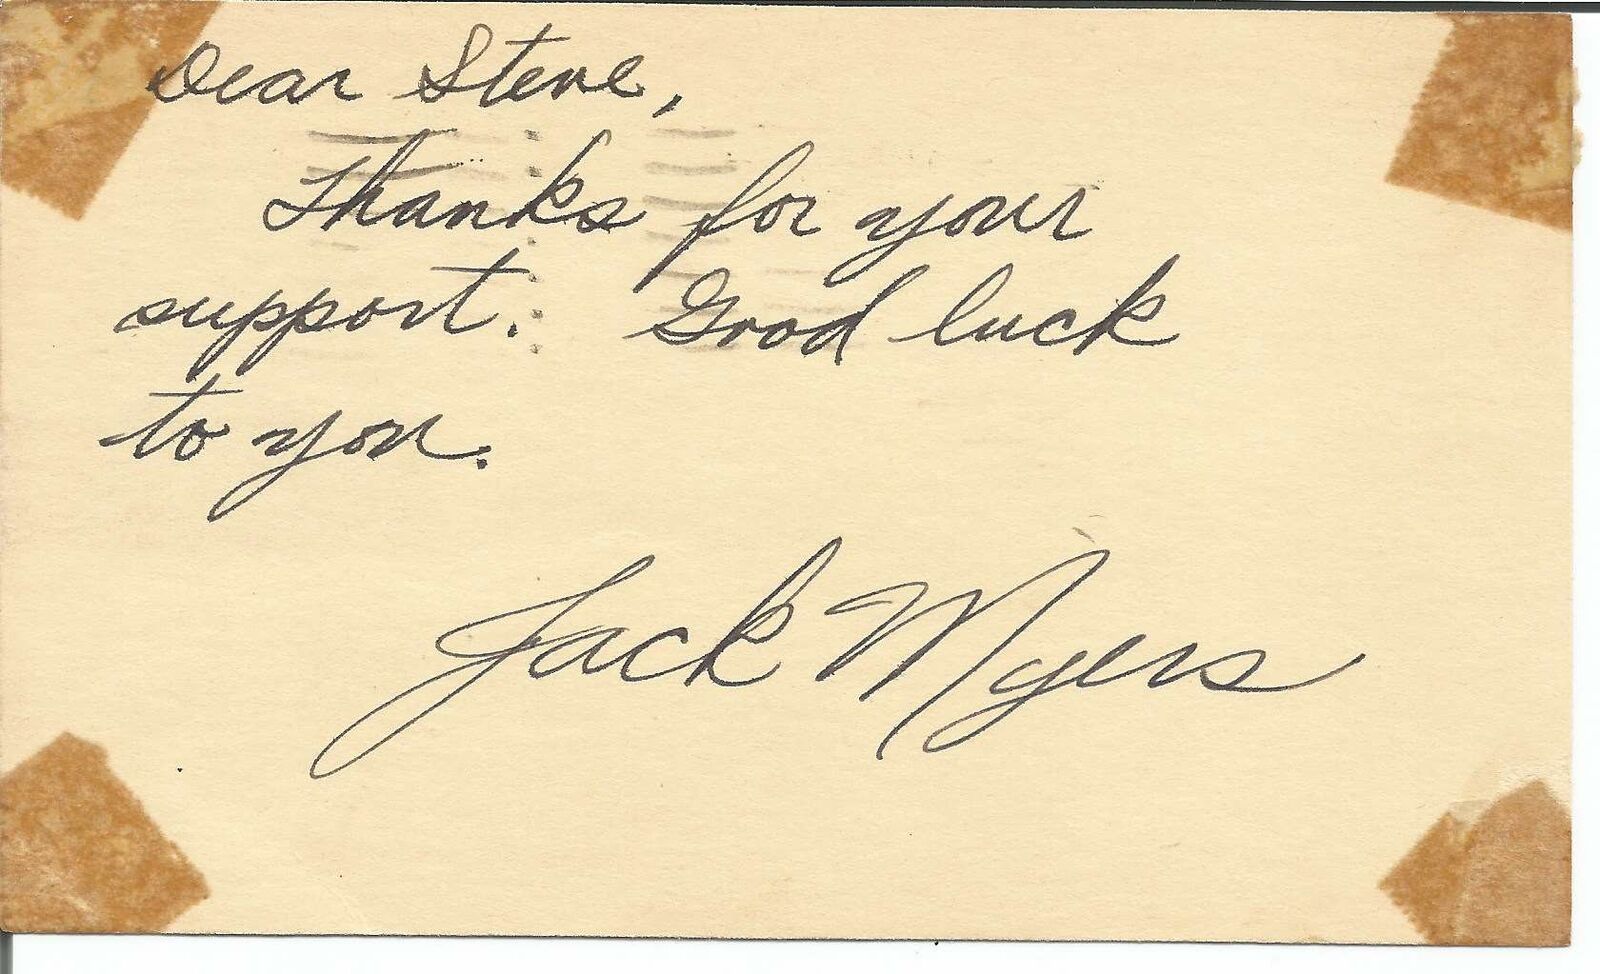 Dear Steve,
Thanks for your
support. Good luck
to you.
Jack Myers